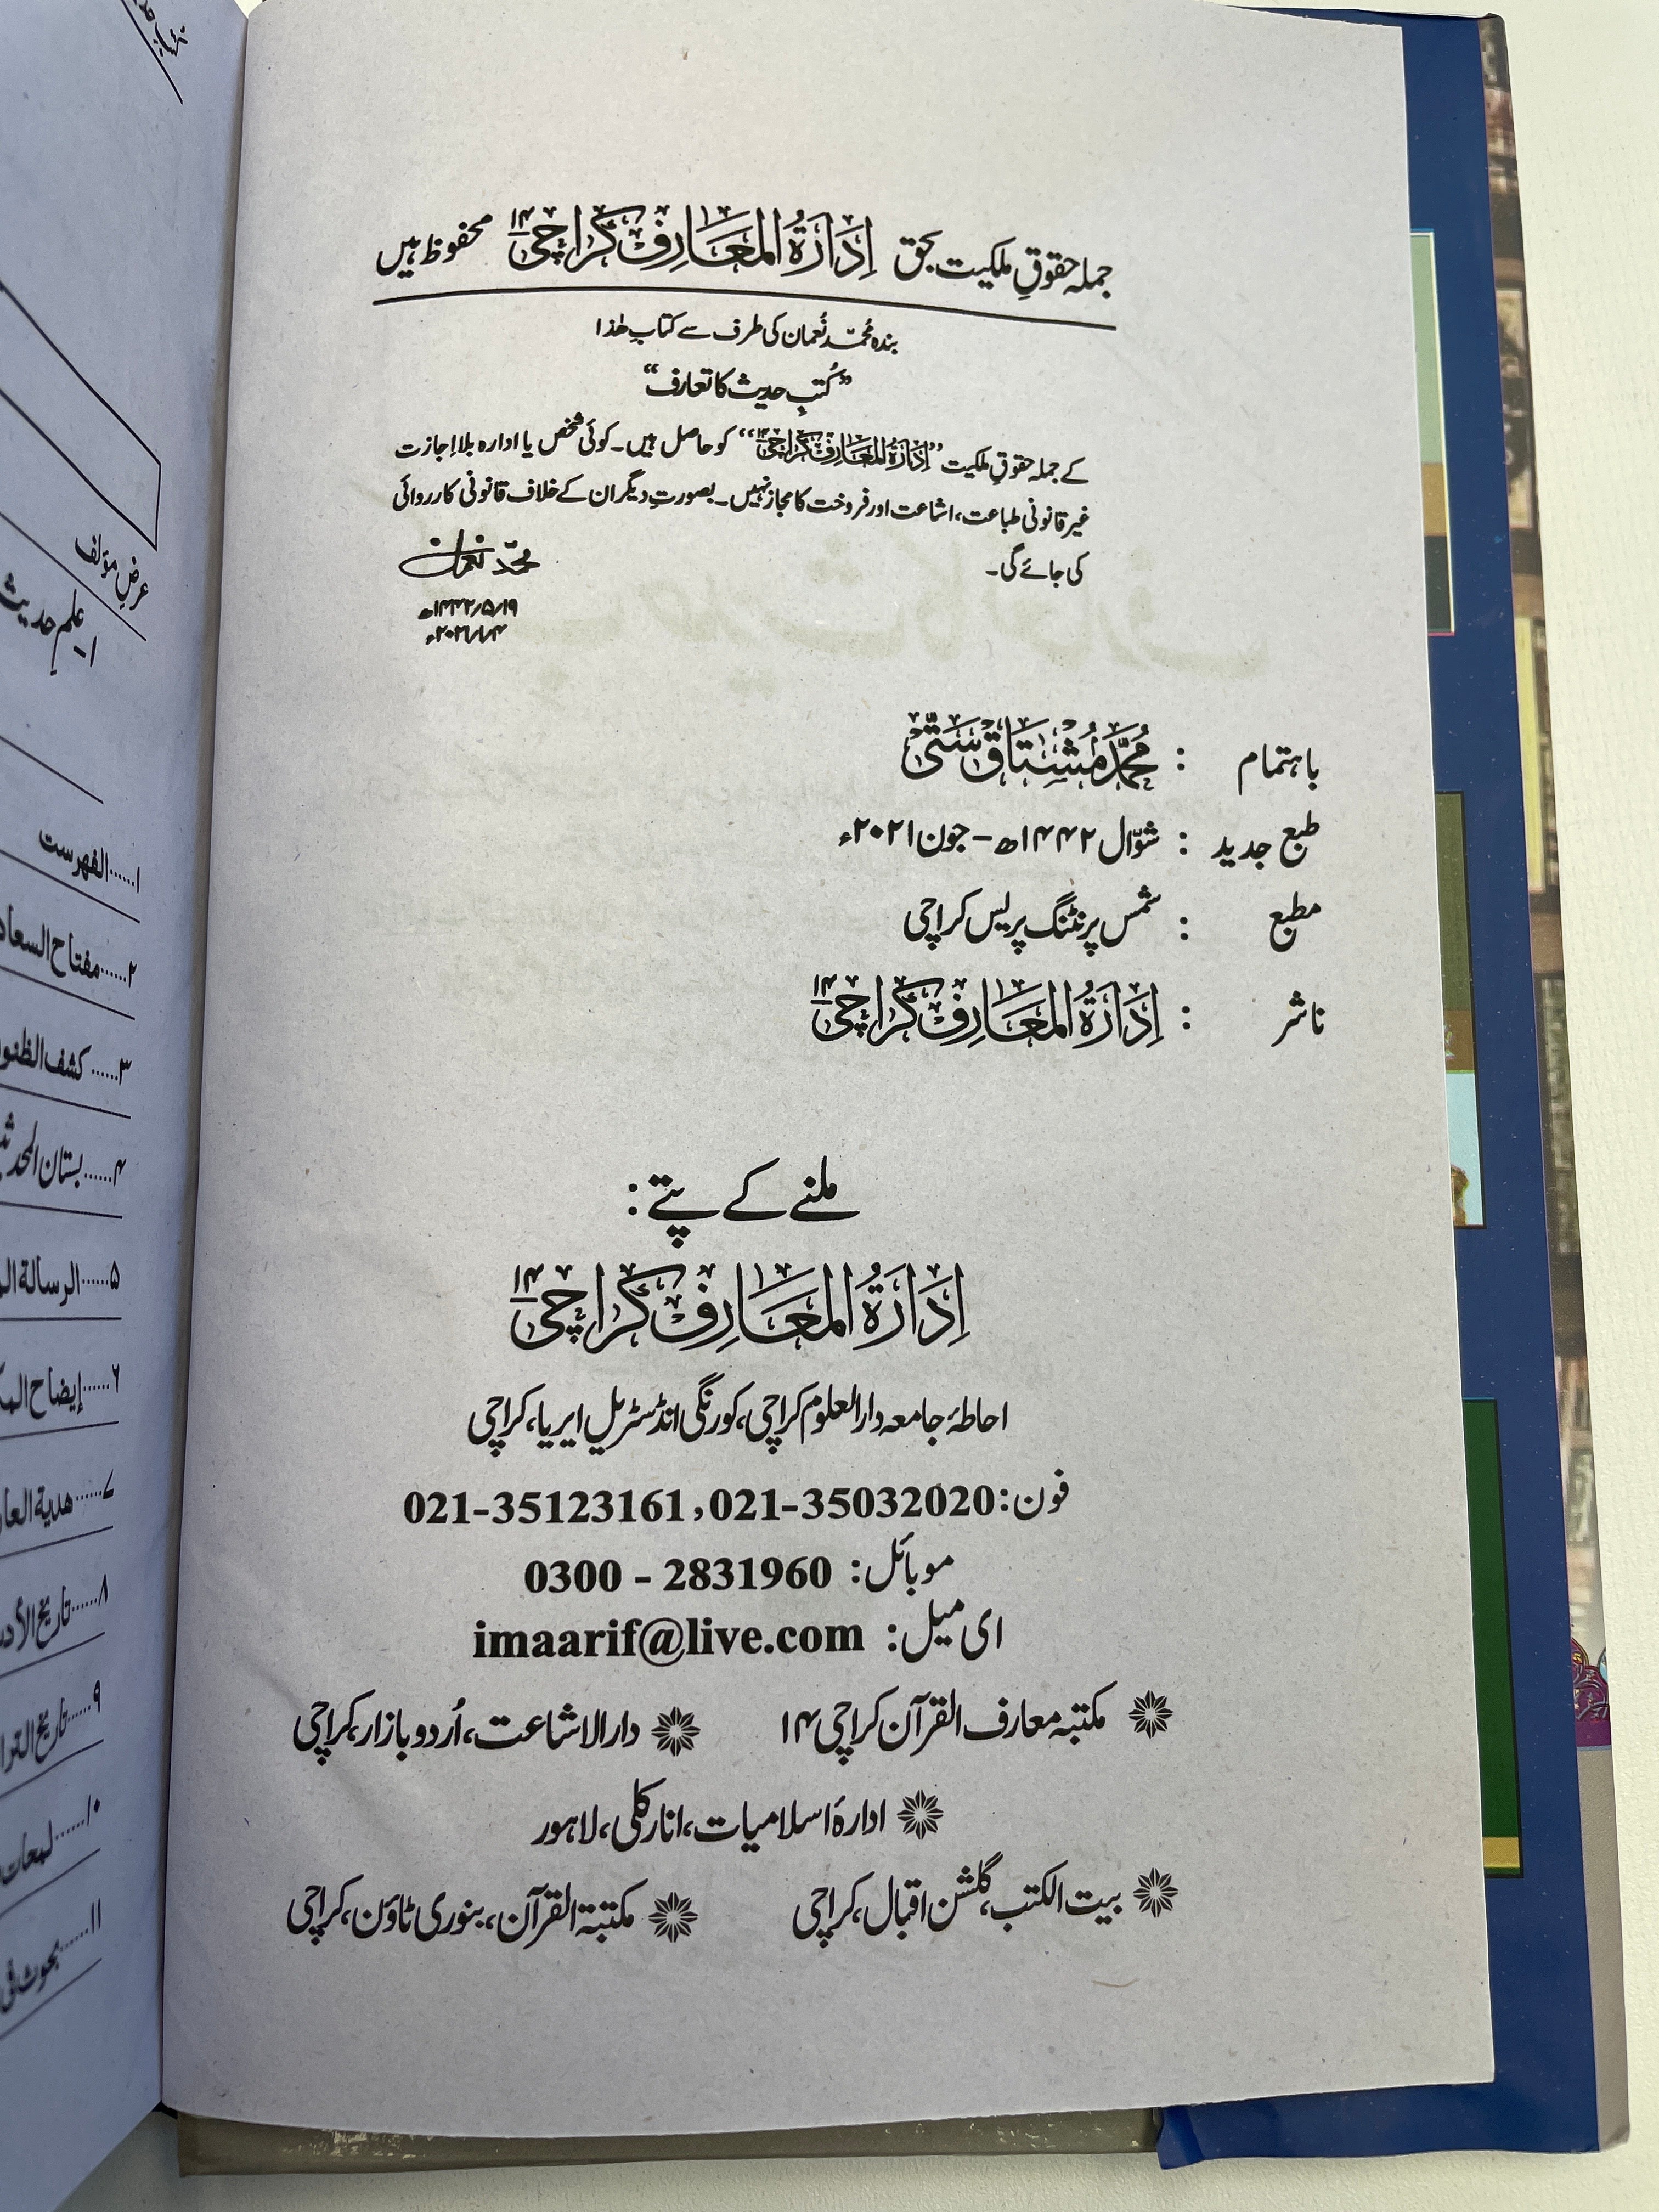 جملہ حقوقِ ملکیت بحق اِدَارَۃُ الْمَعَارِف کَرَاچِی ۱۴ محفوظ ہیں
بندہ محمد نُعمان کی طرف سے کتابِ ھٰذا
”کُتبِ حدیث کا تعارف“
کے جملہ حقوقِ ملکیت ”اِدَارَۃُ الْمَعَارِف کَرَاچِی ۱۴“ کو حاصل ہیں۔ کوئی شخص یا ادارہ بلا اجازت
غیر قانونی طباعت، اشاعت اور فروخت کا مجاز نہیں۔ بصورتِ دیگر ان کے خلاف قانونی کارروائی
کی جائے گی۔
محمد نعمان
۱۴۴۲/۵/۱۹ھ
۲۰۲۱/۱/۴ء
باہتمام : مُحَمَّد مُشْتَاق سَتِّی
طبع جدید : شوّال ۱۴۴۲ھ - جون ۲۰۲۱ء
مطبع : شمس پرنٹنگ پریس کراچی
ناشر : اِدَارَۃُ الْمَعَارِف کَرَاچِی ۱۴
ملنے کے پتے:
اِدَارَۃُ الْمَعَارِف کَرَاچِی ۱۴
احاطۂ جامعہ دارالعلوم کراچی، کورنگی انڈسٹریل ایریا، کراچی
فون: 021-35032020, 021-35123161
موبائل: 0300 - 2831960
ای میل: imaarif@live.com
مکتبہ معارف القرآن کراچی ۱۴
دارالاشاعت، اُردو بازار، کراچی
ادارۂ اسلامیات، انارکلی، لاہور
بیت الکتب، گلشن اقبال، کراچی
مکتبۃ القرآن، بنوری ٹاؤن، کراچی
عرضِ مؤلف
علمِ حدیث
۱......الفہرست
۲......مفتاح
۳......کشف
۴......بستان
۵......الرسالة
۶......إيضاح
۷......هدية
۸......تاریخ
۹......تاریخ
۱۰......لمعات
۱۱......بحوث فی